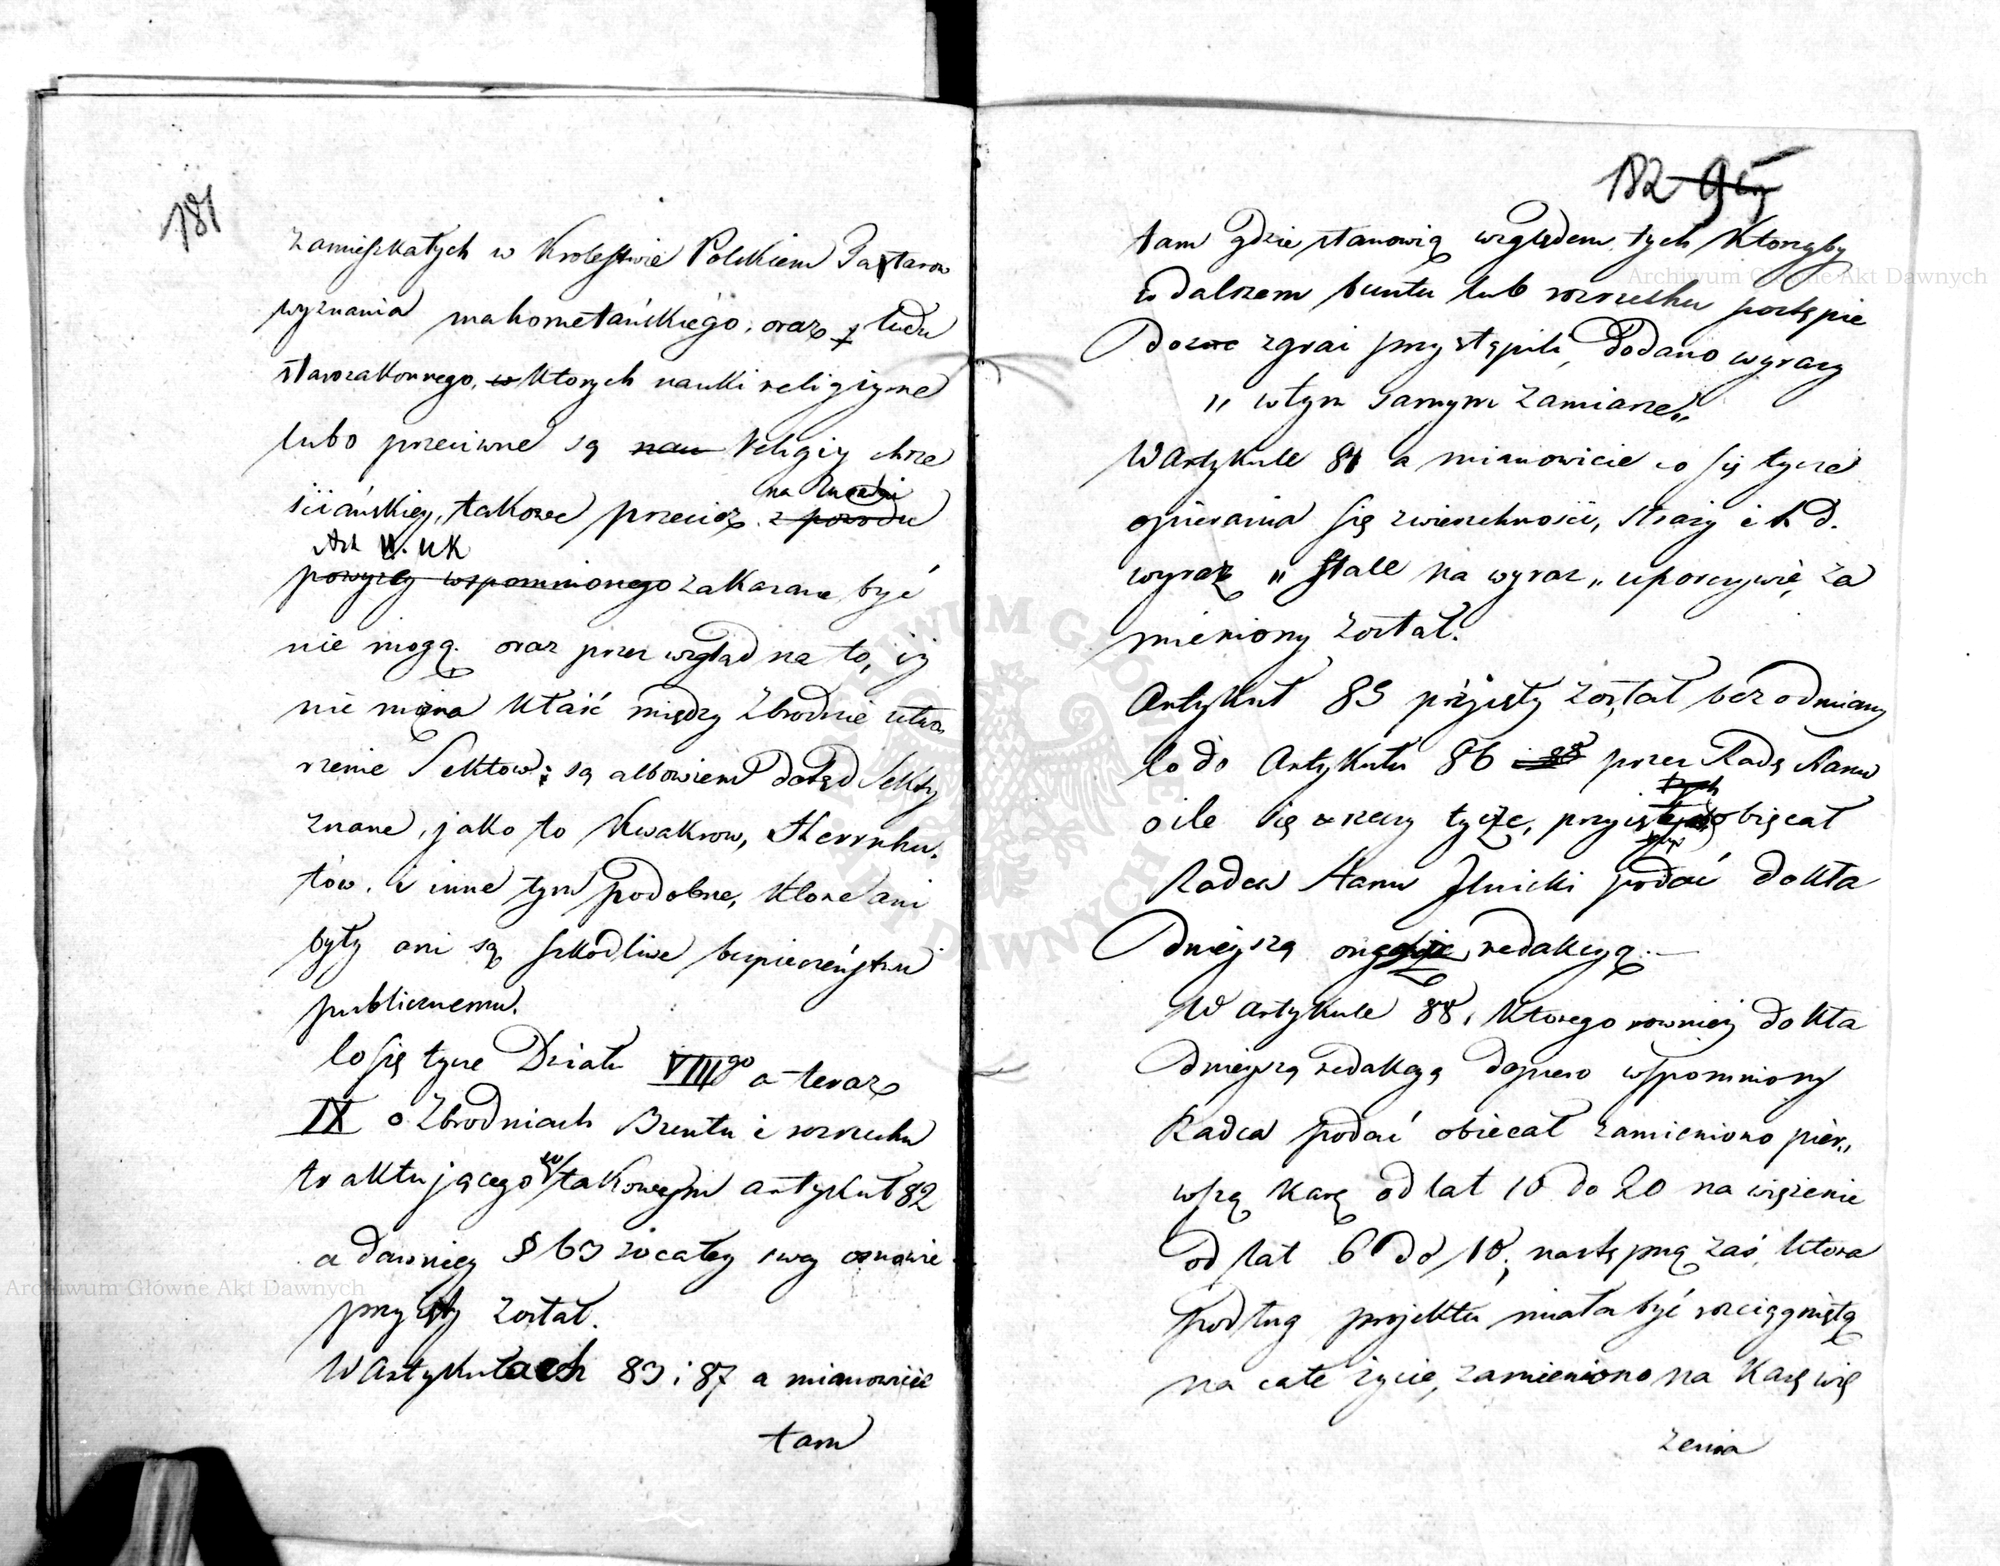 181
zamieszkałych w Krolestwie Polskiem Tatarow
wyznania mahometańskiego, oraz ludu
starozakonnego, których nauki religijne
lubo przeciwne są nau Religiy chrze
ściańskiey, takowe przecież na zasadzie z powodu
Art U. UK
powyżey wspomnionego zakazane być
nie mogą. oraz przez wzgląd na to, iż
nie można kłaść między Zbrodnie utwo
rzenie Sektow; są albowiem dotąd Sekty
znane, jako to Kwakrow, Herrnhu-
tów, i inne tym podobne, które ani
były ani są szkodliwe bezpieczeństwu
publicznemu.
Co się tycze Działu VIIIgo a teraz
IX o Zbrodniach Buntu i rozruchu
traktującego w takowym artykuł 82
a dawniey § 63 w całey swey osnowie
przyięty został.
W Artykułach 83 i 87 a mianowicie
tam
182
tam gdzie stanowią względem tych którzyby
w dalszem buntu lub rozruchu postępie
do zgrai przystąpili, Dodano wyrazy
„ w tym samym zamiarze„
W Artykule 84 a mianowicie co się tycze
opierania się zwierzchności, straży i t. d.
wyraz „ stale na wyraz „ uporczywie, za
mieniony został.
Artykuł 85 przyięty został bez odmiany
Co do Artykułu 86 88 przez Radę Stanu
o ile się rzeczy tycze, przyiętych obiecał
Radca Stanu podać dokła
dniejszą redakcyą. —
W Artykule 88, którego rownież dokła
dniejszą redakcyą dopiero wspomniony
Radca podać obiecał zamieniono pier„
wszą karę od lat 10 do 20 na więzienie
od lat 6 do 10; następną zaś, która
podług projektu miała być rozciągniętą
na całe życie, zamieniono na karę wię
zenia
Archiwum Główne Akt Dawnych
Archiwum Główne Akt Dawnych
ARCHIWUM GŁÓWNE AKT DAWNYCH